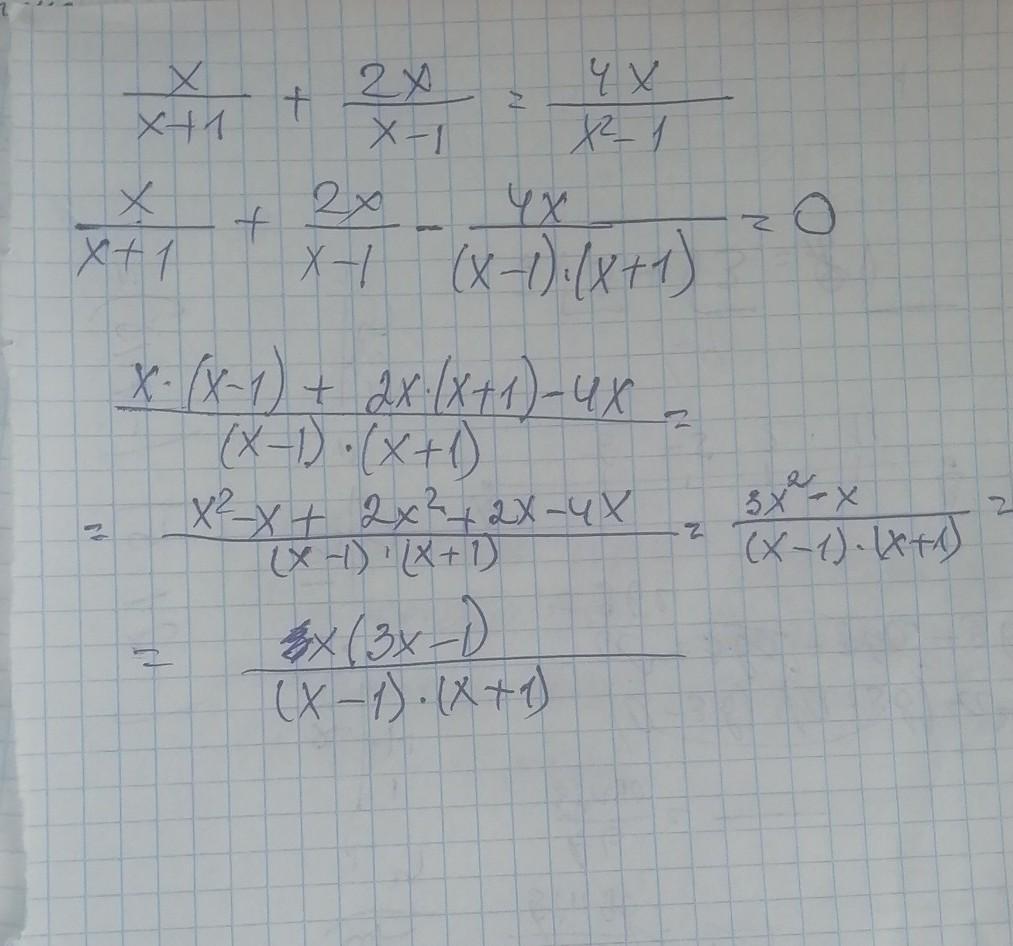 x/(x+1) + 2x/(x-1) = 4x/(x²-1)
x/(x+1) + 2x/(x-1) - 4x/((x-1)·(x+1)) = 0
(x·(x-1) + 2x·(x+1)-4x)/((x-1)·(x+1)) =
= (x²-x+2x²+2x-4x)/((x-1)·(x+1)) = (3x²-x)/((x-1)·(x+1)) =
= x(3x-1)/((x-1)·(x+1))